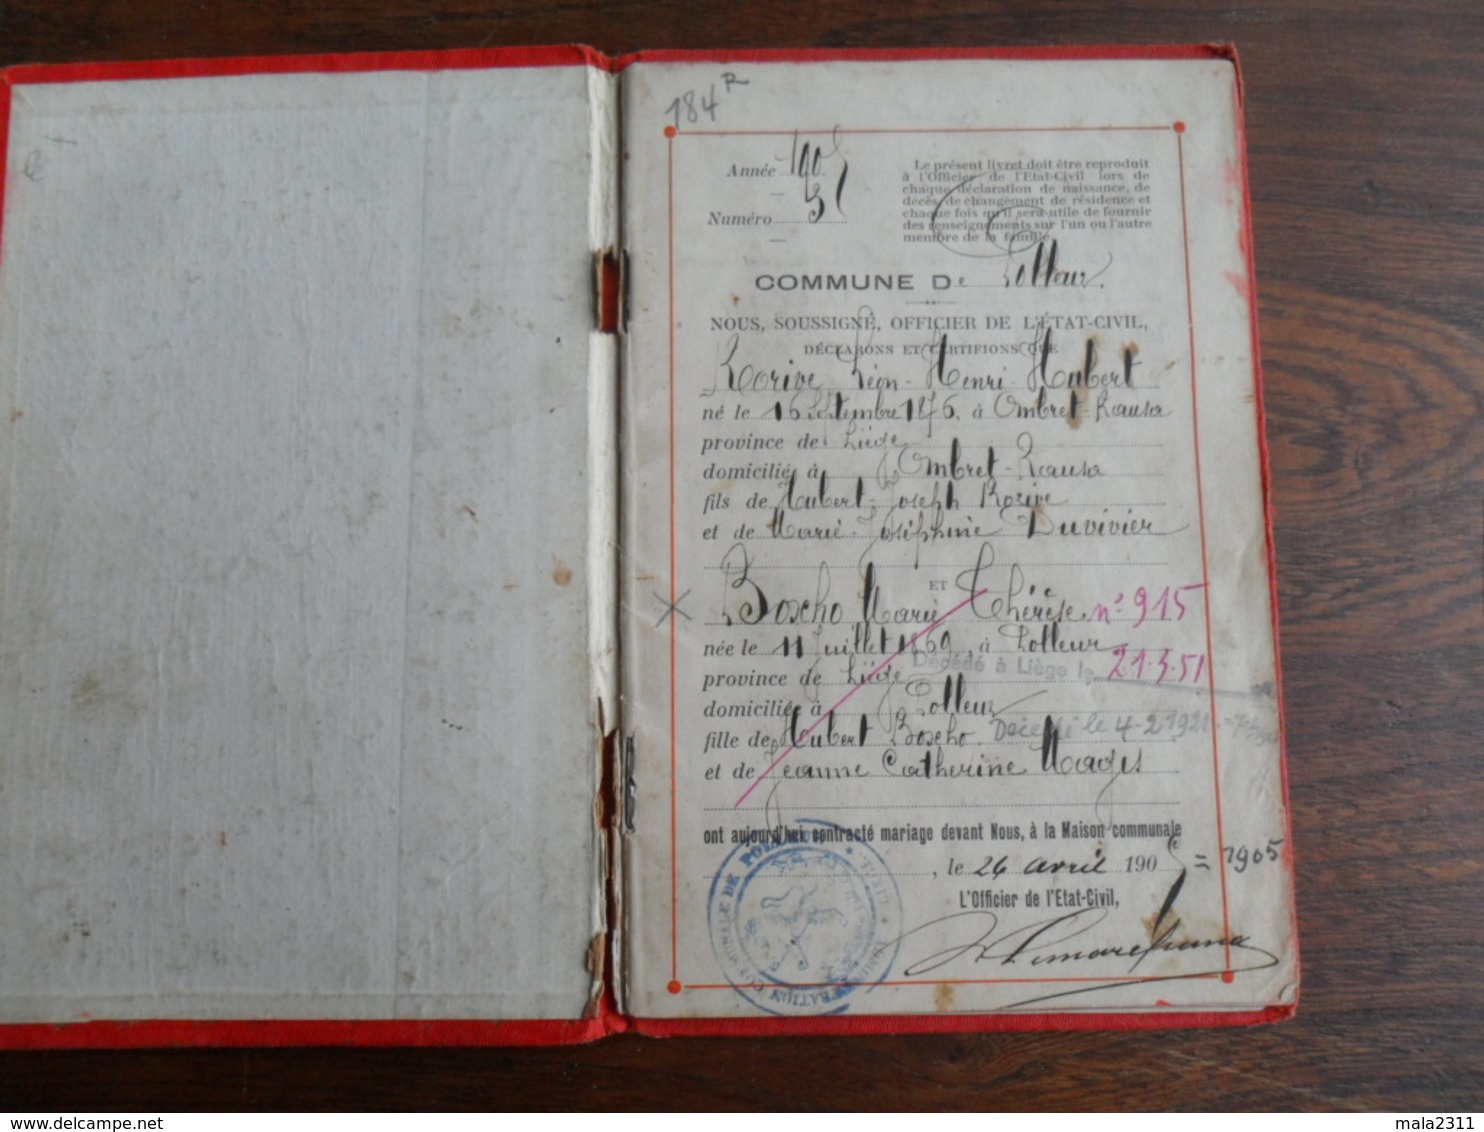 184 R
Année 1905
Numéro 3
Le présent livret doit être reproduit
à l'Officier de l'Etat-Civil lors de
chaque déclaration de naissance, de
décès, de changement de résidence et
chaque fois qu'il sera utile de fournir
des renseignements sur l'un ou l'autre
membre de la famille.
COMMUNE De Polleur.
NOUS, SOUSSIGNÉ, OFFICIER DE L'ÉTAT-CIVIL,
DÉCLARONS ET CERTIFIONS QUE
Rorive Léon-Henri-Hubert
né le 16 Septembre 1876, à Ombret-Rausa
province de Liège
domicilié à Ombret-Rausa
fils de Hubert-Joseph Rorive
et de Marie-Joséphine Duvivier
ET
Boscho Marie Thérèse n° 915
née le 11 Juillet 1869, à Polleur
province de Liège Décédé à Liège le 21.3.51
domiciliée à Polleur
fille de Hubert Boscho. Décédé le 4-2-1921
et de Jeanne Catherine Magis
ont aujourd'hui contracté mariage devant Nous, à la Maison communale
, le 26 avril 1905 = 1905
L'Officier de l'Etat-Civil,
delcampe.net
mala2311